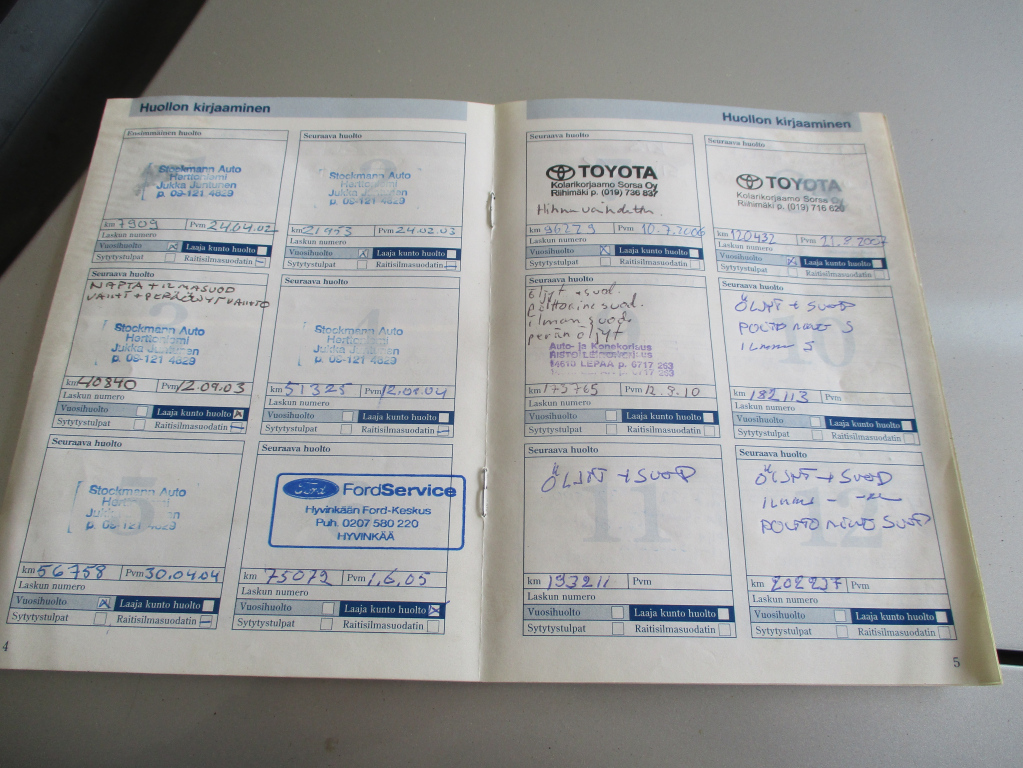 Huollon kirjaaminen
Ensimmäinen huolto
Stockmann Auto
Herttoniemi
Jukka Juntunen
p. 09-121 4629
km 7909 Pvm 24.04.02
Laskun numero
Vuosihuolto Laaja kunto huolto
Sytytystulpat Raitisilmasuodatin
Seuraava huolto
Stockmann Auto
Herttoniemi
Jukka Juntunen
p. 09-121 4629
km 21953 Pvm 24.02.03
Laskun numero
Vuosihuolto Laaja kunto huolto
Sytytystulpat Raitisilmasuodatin
Seuraava huolto
NAPTA + ILMASUOD
VAIHT + PERÄÖLJYT VAIHTO
3
Stockmann Auto
Herttoniemi
Jukka Juntunen
p. 09-121 4629
km 40840 Pvm 12.09.03
Laskun numero
Vuosihuolto Laaja kunto huolto
Sytytystulpat Raitisilmasuodatin
Seuraava huolto
4
Stockmann Auto
Herttoniemi
Jukka Juntunen
p. 09-121 4629
km 51325 Pvm 12.01.04
Laskun numero
Vuosihuolto Laaja kunto huolto
Sytytystulpat Raitisilmasuodatin
Seuraava huolto
5
Stockmann Auto
Herttoniemi
Jukka Juntunen
p. 09-121 4629
km 56758 Pvm 30.04.04
Laskun numero
Vuosihuolto Laaja kunto huolto
Sytytystulpat Raitisilmasuodatin
Seuraava huolto
Ford FordService
Hyvinkään Ford-Keskus
Puh. 0207 580 220
HYVINKÄÄ
km 75072 Pvm 1.6.05
Laskun numero
Vuosihuolto Laaja kunto huolto
Sytytystulpat Raitisilmasuodatin
4
Huollon kirjaaminen
Seuraava huolto
TOYOTA
Kolarikorjaamo Sorsa Oy
Riihimäki p. (019) 736 837
Hihna vaihdettu
km 96279 Pvm 10.7.2006
Laskun numero
Vuosihuolto Laaja kunto huolto
Sytytystulpat Raitisilmasuodatin
Seuraava huolto
TOYOTA
Kolarikorjaamo Sorsa Oy
Riihimäki p. (019) 716 620
km 120432 Pvm 21.8.2007
Laskun numero
Vuosihuolto Laaja kunto huolto
Sytytystulpat Raitisilmasuodatin
Seuraava huolto
Öljyt + suod.
Polttoaine suod.
ilman suod.
perän öljyt
Auto- ja Konekorjaus
14610 LEPAA p. 6717 263
km 175765 Pvm 12.8.10
Laskun numero
Vuosihuolto Laaja kunto huolto
Sytytystulpat Raitisilmasuodatin
Seuraava huolto
10
ÖLJYT + SUOD
POLTO AINE S
ILMAN S
km 182113 Pvm
Laskun numero
Vuosihuolto Laaja kunto huolto
Sytytystulpat Raitisilmasuodatin
Seuraava huolto
ÖLJYT + SUOD
11
km 193211 Pvm
Laskun numero
Vuosihuolto Laaja kunto huolto
Sytytystulpat Raitisilmasuodatin
Seuraava huolto
ÖLJYT + SUOD
POLTOAINE SUOD
12
km 202237 Pvm
Laskun numero
Vuosihuolto Laaja kunto huolto
Sytytystulpat Raitisilmasuodatin
5